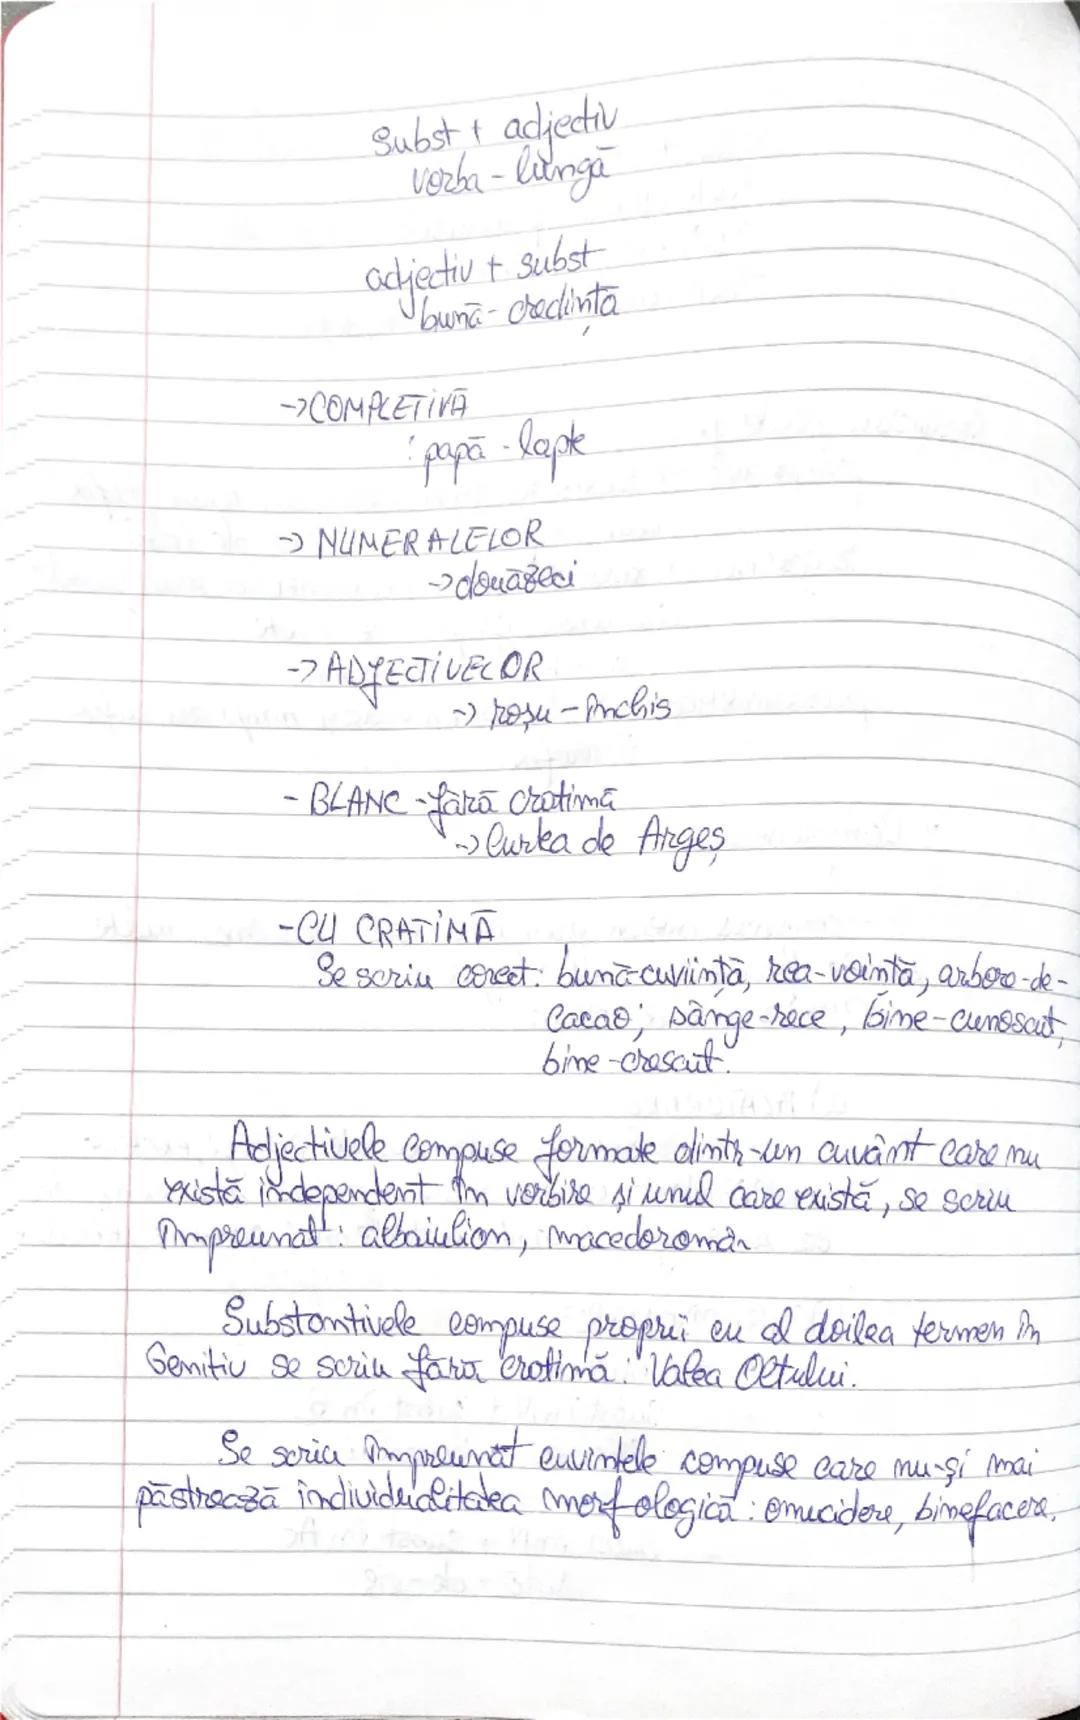 Subst + adjectiv
vorba - lungă
adjectiv + subst
bună - credință
-> COMPLETIVĂ
: papă - lapte
-> NUMERALELOR
-> douăzeci
-> ADJECTIVELOR
-> roșu - închis
- BLANC - fără cratimă
-> Curtea de Argeș
- CU CRATIMĂ
Se scriu corect: bună-cuviință, rea-voință, arbore-de-
cacao; sânge-rece, bine-cunoscut,
bine-crescut.
Adjectivele compuse formate dintr-un cuvânt care nu
există independent în vorbire și unul care există, se scriu
împreunat: albaiulian, macedoromân
Substantivele compuse proprii cu al doilea termen în
Genitiv se scriu fără cratimă: Valea Oltului.
Se scriu împreunat cuvintele compuse care nu-și mai
păstrează individualitatea morfologică: omucidere, binefacere.